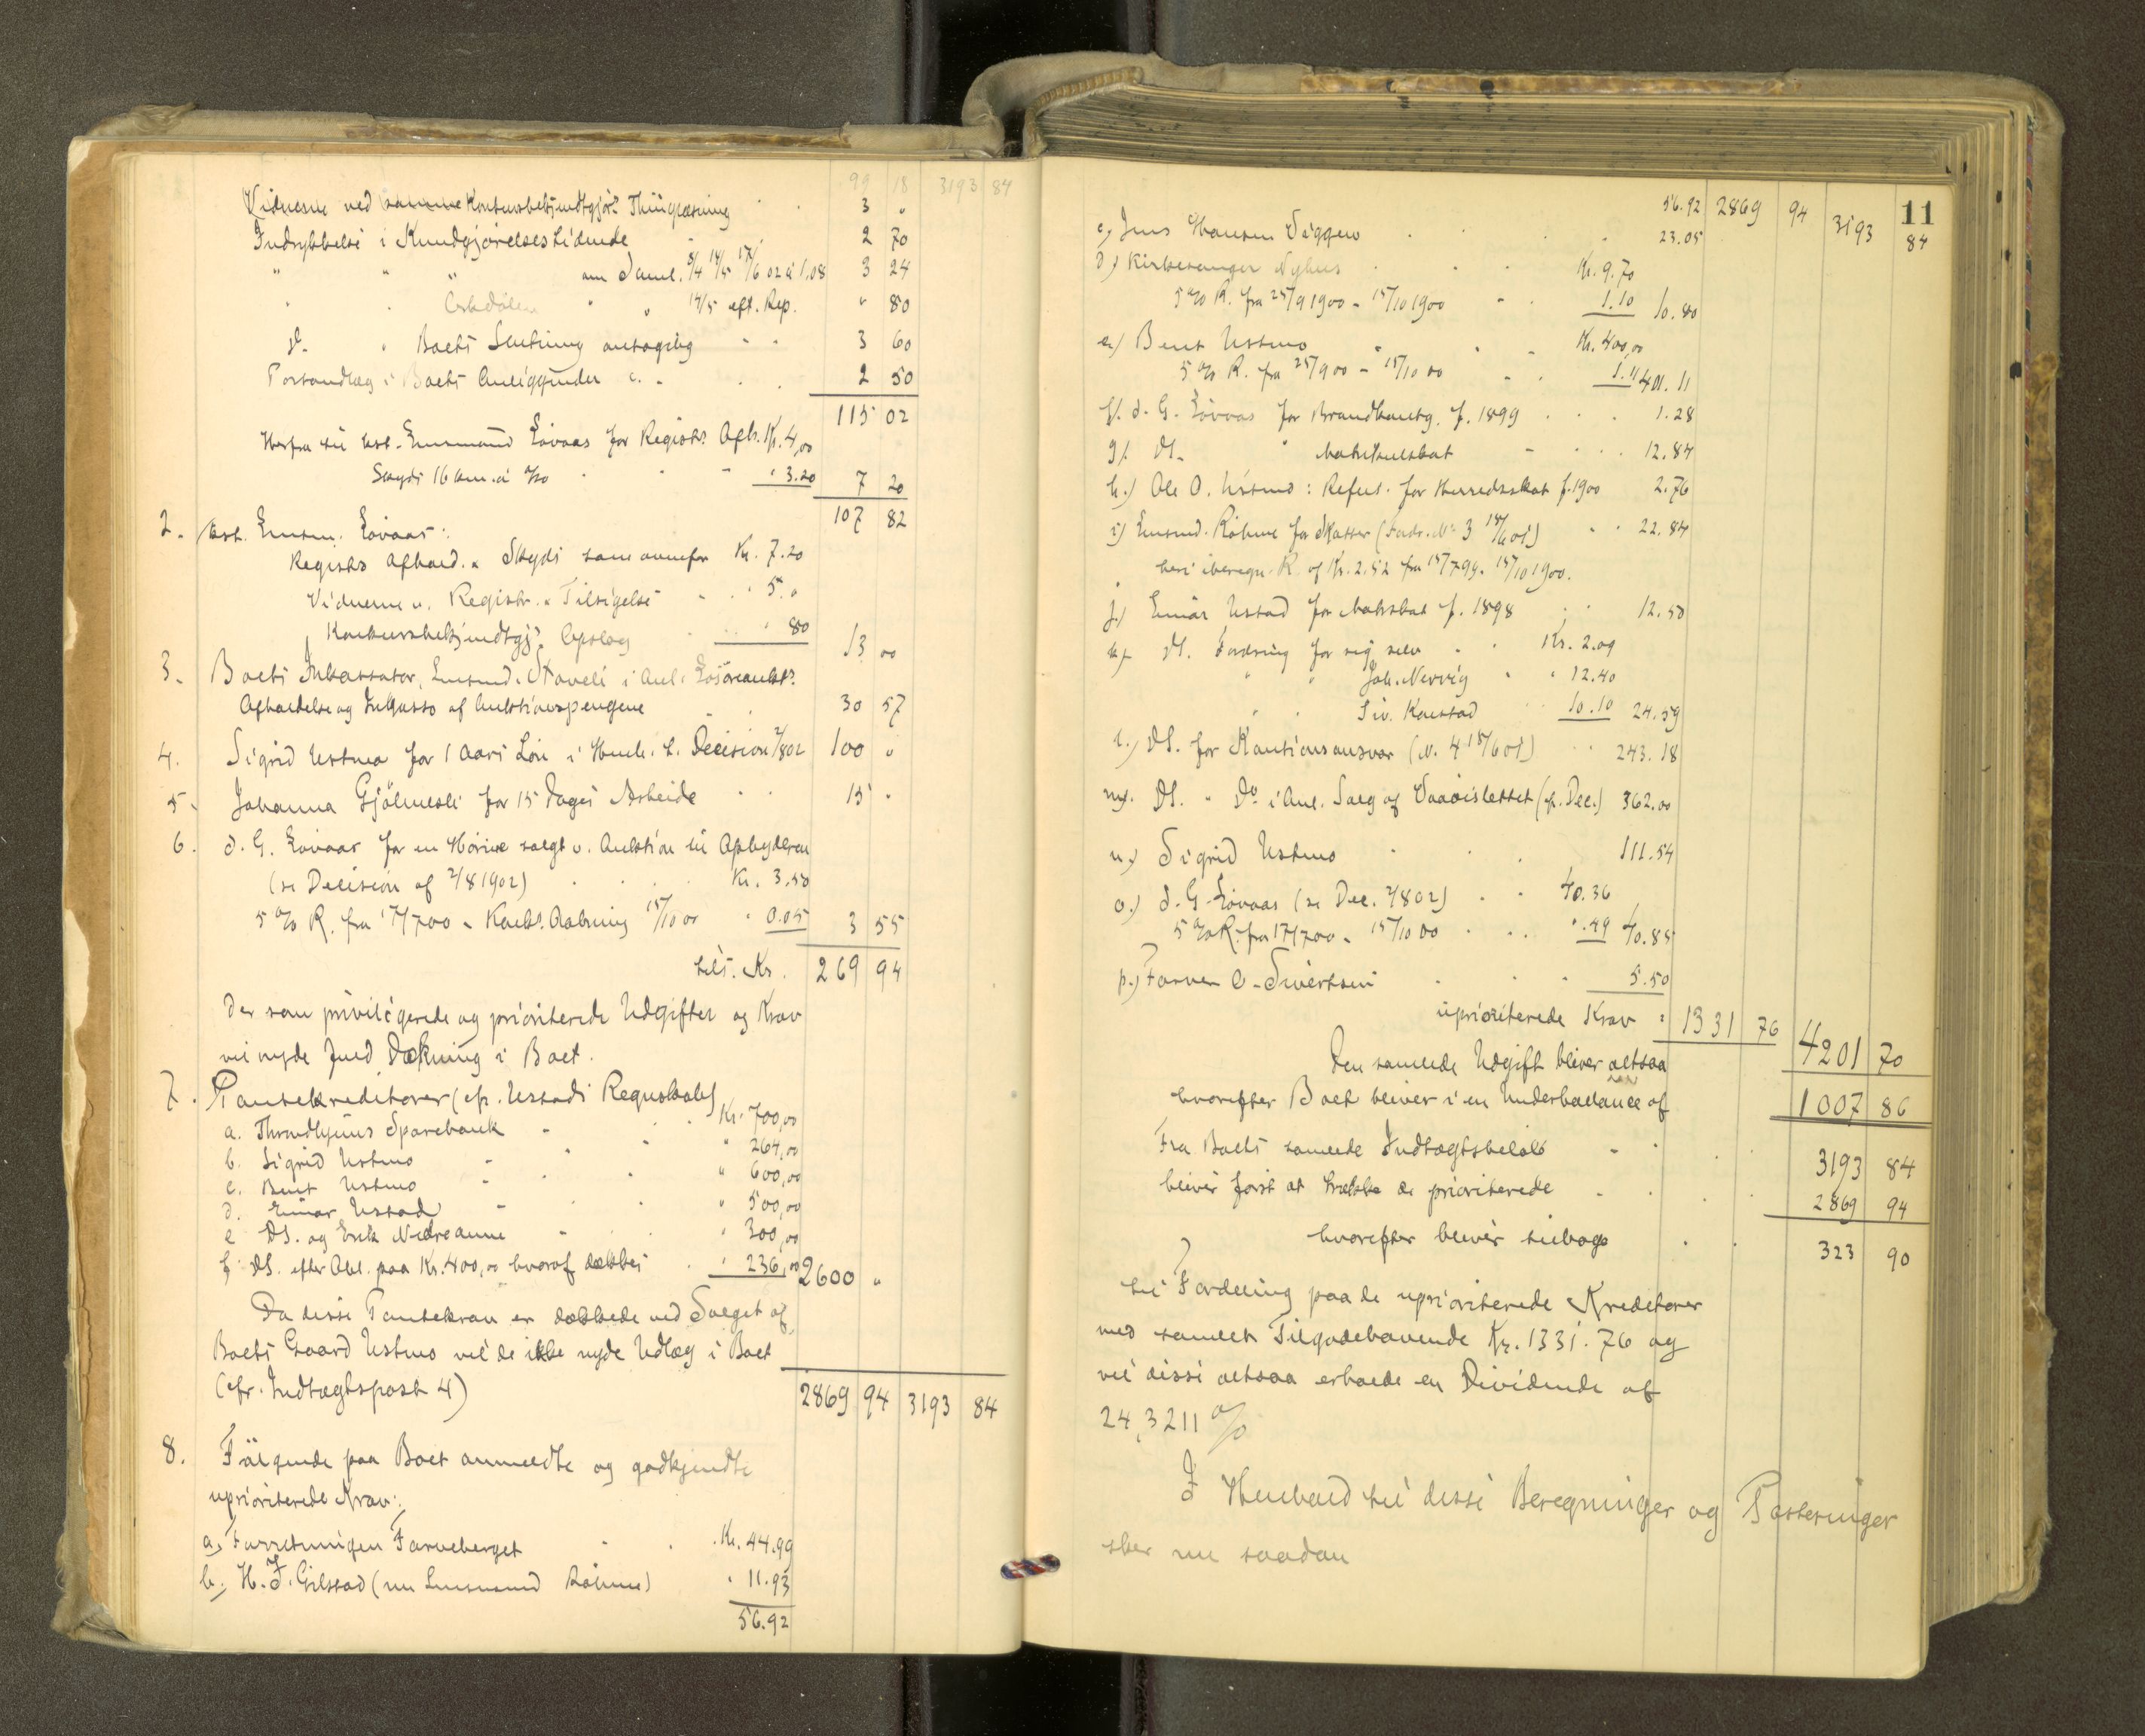 99 18 3193 84
Vidnerne ved samme Konkursbekjendtgjør. Thinglæsning 3 "
Indrykkelse i Kundgjørelsestidende 2 70
" " " om Saml. 3/4 14/5 17/6 02 à 1,08 3 24
" " " 14/5 eft. Rep. " 80
D. " Boets Slutning antagelig 3 60
Portoudlæg i Boets Anliggender c. 2 50
115 02
Herfra til kst. Lensmand Løvaas for Registr. Afh. Kr. 4,00
Skyds 16 km. à " 3.20 7 20
107 82
2. kst. Lensm. Løvaas:
Registrs Afhold. " Skyds som ovenfor Kr. 7.20
Vidnerne v. Registr. " Tilsigelse " 5. "
Konkursbekjendtgj. Opslag " 80
13 00
3. Boets Inkassator, Lensmd. Støveli i Anl. Løsøreaukt.
Afholdelse og Inkasso af Auktionspengene 30 57
4. Sigrid Ustmo for 1 Aars Løn i Henh. t. Decision 2/8 02 100 "
5. Johanna Gjølmesli for 15 Dages Arbeide 15 "
6. d. G. Løvaas for en Hørive solgt v. Auktion til Opbyderen
(se Decision af 2/8 1902) Kr. 3.50
5 % R. fra 17/7 00 - Konk. Aabning 15/10 00 " 0.05 3 55
tils. Kr. 269 94
Der som privilegerede og prioriterede Udgifter og Krav
vil nyde fuld Dækning i Boet.
7. Pantekreditorer (cfr. Ustads Regnskab)
a. Throndhjems Sparebank Kr. 700,00
b. Sigrid Ustmo " 264,00
c. Bent Ustmo " 600,00
d. Einar Ustad " 500,00
e. DS. og Erik Nedreaune " 300,00
f. DS. efter Obl. paa Kr. 400,00 hvoraf dækkes " 236,00 2600 "
Da disse Pantekrav er dækkede ved Salget af
Boets Gaard Ustmo vil de ikke nyde Udlæg i Boet
(cfr. Indtægtspost 4)
2869 94 3193 84
8. Følgende paa Boet anmeldte og godkjendte
uprioriterede Krav:
a, Forretningen Farveberget Kr. 44.99
b, H. J. Gilstad (nu Lensmand Røhme) " 11.93
56.92
11
56.92 2869 94 3193 84
c, Jens Hansen Viggen 23.05
d.) Kirkesanger Nyhus Kr. 9.70
5 % R. fra 25/9 1900 - 15/10 1900 1.10 10.80
e.) Bent Ustmo Kr. 400,00
5 % R. fra 25/9 00 - 15/10 00 1.11 401.11
f. d. G. Løvaas for Brandkontg. f. 1899 1.28
g. DS. " Matrikulskat 12.84
h.) Ole O. Ustmo: Refus. for Herredsskat f. 1900 2.76
i) Lensmd. Røhme for Skatter (Fordr. No 3 18/6 01) 22.84
heri iberegn. R. af Kr. 2.52 fra 15/7 99 - 15/10 1900.
j.) Einar Ustad for Matrskat f. 1898 12.50
k. DS. Fordring for sig selv Kr. 2.09
" " Joh. Nervig " 12.40
" " Siv. Kaustad 10.10 24.59
l.) DS. for Kautionsansvar (N. 4 18/6 01) 243.18
m. DS. " Do i Anl. Salg af Vaaøislettet (cfr. Dec.) 362.00
n.) Sigrid Ustmo 111.54
o.) d. G. Løvaas (se Dec. 2/8 02) 40.36
5 % R. fra 17/7 00 - 15/10 00 ".49 40.85
p.) Farver O. Sivertsen 5.50
uprioriterede Krav: 1331 76
Den samlede Udgift bliver altsaa 4201 70
hvorefter Boet bliver i en Underballance af 1007 86
Fra Boets samlede Indtægtsbeløb 3193 84
bliver først at trække de prioriterede 2869 94
hvorefter bliver tilbage 323 90
til Fordeling paa de uprioriterede Kreditorer
med samlet Tilgodehavende Kr. 1331.76 og
vil disse altsaa erholde en Dividende af
24,3211 %
I Henhold til disse Beregninger og Posteringer
sker nu saadan